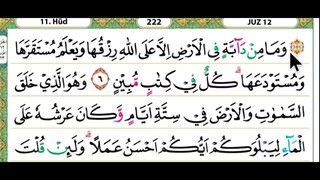 11. Hūd 222 JUZ 12
وَمَا مِنْ دَآبَّةٍ فِى الْاَرْضِ اِلَّا عَلَى اللّٰهِ رِزْقُهَا وَيَعْلَمُ مُسْتَقَرَّهَا
وَمُسْتَوْدَعَهَا ۗ كُلٌّ فِيْ كِتٰبٍ مُّبِيْنٍ ٦ وَهُوَ الَّذِيْ خَلَقَ
السَّمٰوٰتِ وَالْاَرْضَ فِيْ سِتَّةِ اَيَّامٍ وَّكَانَ عَرْشُهٗ عَلَى
الْمَاۤءِ لِيَبْلُوَكُمْ اَيُّكُمْ اَحْسَنُ عَمَلًا ۗ وَلَىِٕنْ قُلْتَ